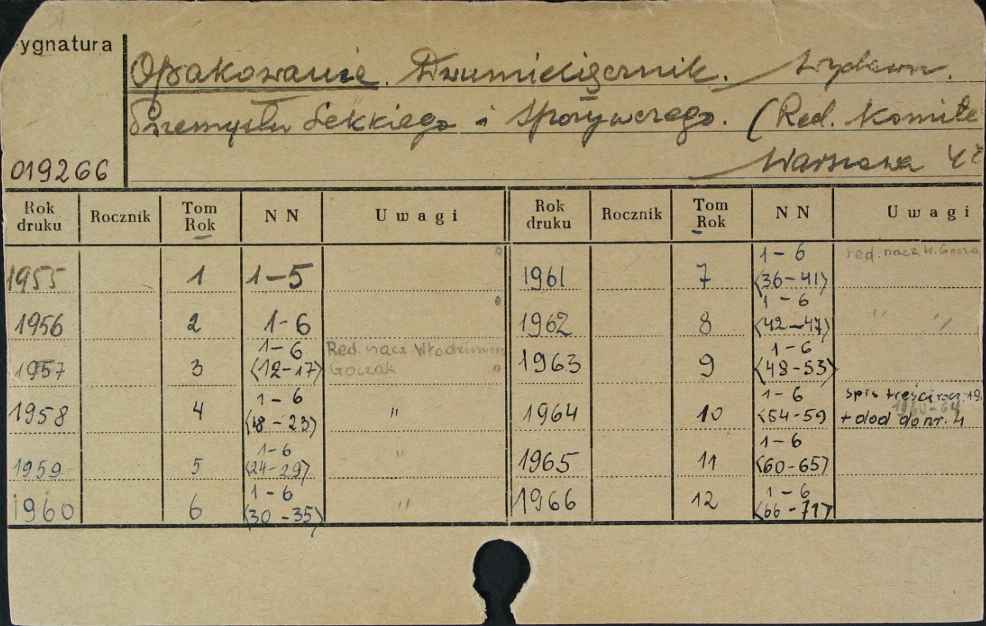 ygnatura
Opakowanie. Dwumiesięcznik. Wydawn.
Przemysłu Lekkiego i Spożywczego. (Red. Komite
019266
Warszawa
Rok druku Rocznik Tom Rok NN Uwagi Rok druku Rocznik Tom Rok NN Uwagi
1955 1 1-5 1961 7 1-6 (36-41) red. nacz. W. Goczał
1956 2 1-6 1962 8 1-6 (42-47) " "
1957 3 1-6 (12-17) Red. nacz. Włodzimierz Goczał 1963 9 1-6 (48-53)
1958 4 1-6 (18-23) " 1964 10 1-6 (54-59) spis treści + dod do nr. 4
1959 5 1-6 (24-29) " 1965 11 1-6 (60-65)
1960 6 1-6 (30-35) " 1966 12 1-6 (66-71)